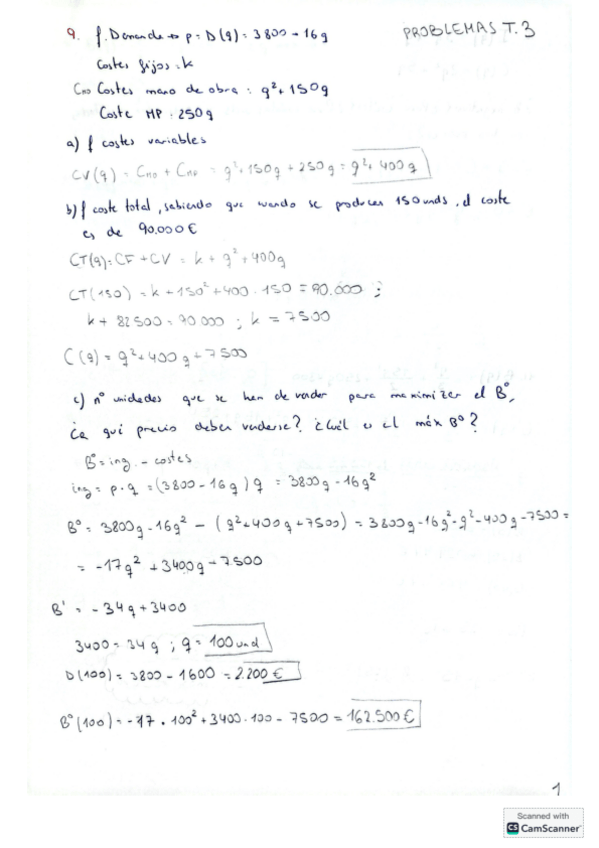 PROBLEMAS T.3
9. f. Demanda → p = D(q) = 3800 - 16q
Costes fijos: k
CMO Costes mano de obra: q² + 150q
Coste MP: 250q
a) f costes variables
CV(q) = CMO + CMP = q² + 150q + 250q = q² + 400q
b) f coste total, sabiendo que cuando se producen 150 unds, el coste
es de 90.000€
CT(q) = CF + CV = k + q² + 400q
CT(150) = k + 150² + 400 · 150 = 90.000 ;
k + 82500 = 90000 ; k = 7500
C(q) = q² + 400q + 7500
c) nº unidades que se han de vender para maximizar el Bº,
¿a qué precio deben venderse? ¿Cuál es el máx Bº?
Bº = ing. - costes
ing = p · q = (3800 - 16q) q = 3800q - 16q²
Bº = 3800q - 16q² - (q² + 400q + 7500) = 3800q - 16q² - q² - 400q - 7500 =
= -17q² + 3400q - 7500
B' = -34q + 3400
3400 = 34q ; q = 100 und
D(100) = 3800 - 1600 = 2.200 €
Bº(100) = -17 · 100² + 3400 · 100 - 7500 = 162.500 €
1
Scanned with
CS CamScanner